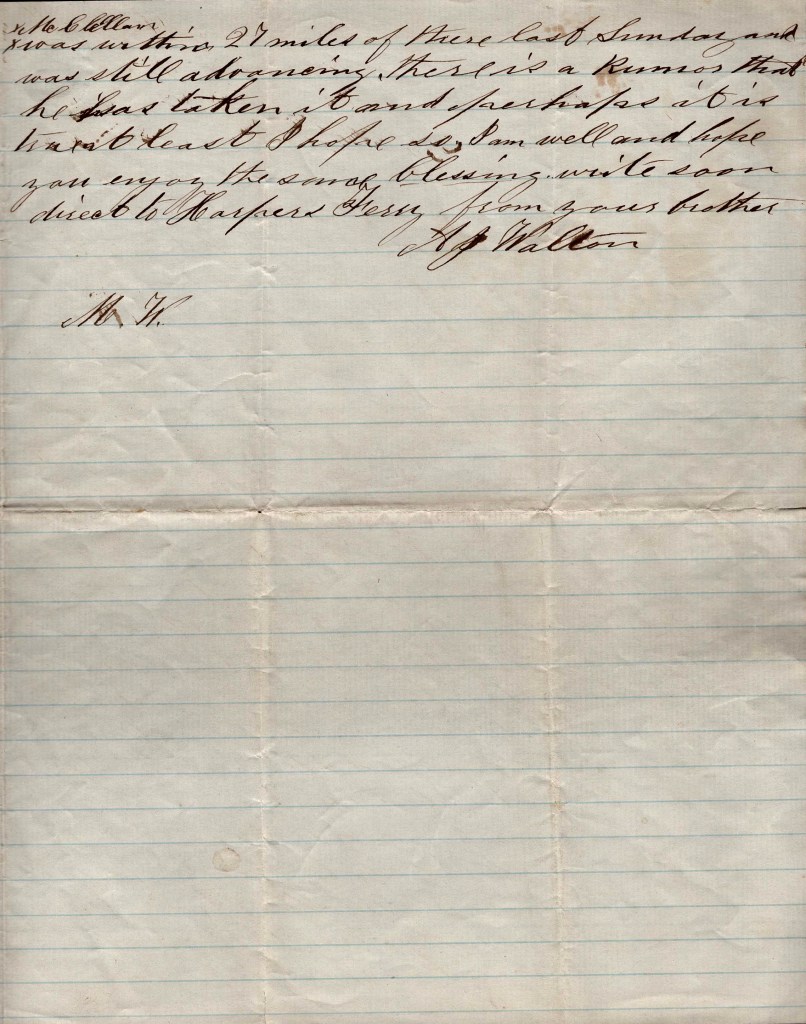 x McClellan
x was within 27 miles of there last Sunday and
was still advancing, there is a Rumor that
he has taken it and perhaps it is
true at least I hope so, I am well and hope
you enjoy the same blessing. write soon
direct to Harpers Ferry from your brother
A J Walton
M. W.